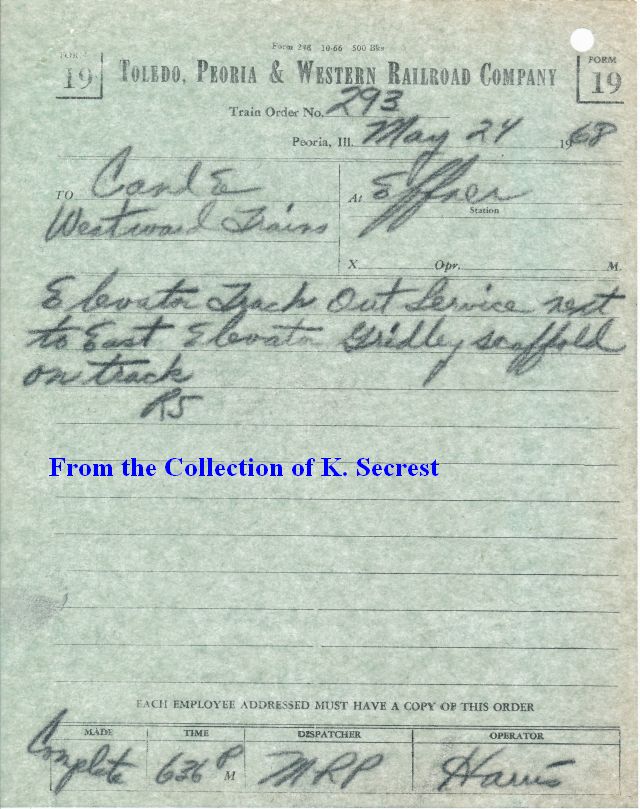 Form 248 10-66 500 Bks
FORM 19
TOLEDO, PEORIA & WESTERN RAILROAD COMPANY
FORM 19
Train Order No. 293
Peoria, Ill. May 24 1968
TO C and E
At Effner
Station
Westward Trains
X Opr. M.
Elevator Track Out Service next
to East Elevator Gridley scaffold
on track
RS
From the Collection of K. Secrest
EACH EMPLOYEE ADDRESSED MUST HAVE A COPY OF THIS ORDER
MADE TIME DISPATCHER OPERATOR
Complete 636 P M MRP Harris